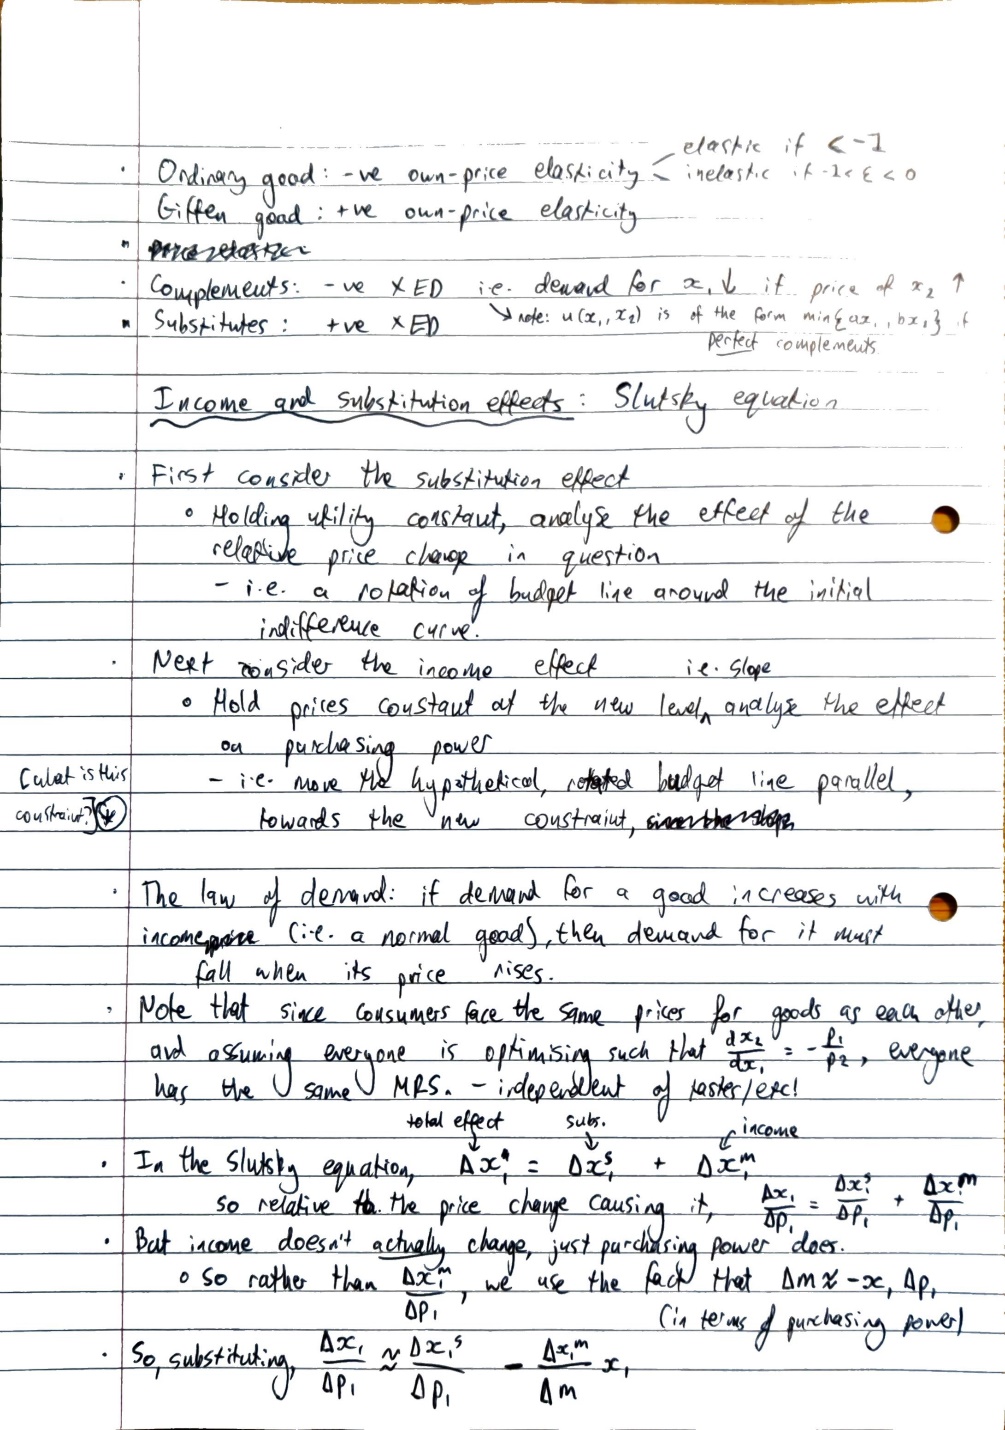 elastic if < -1
Ordinary good: -ve own-price elasticity < inelastic if -1 < ε < 0
Giffen good: +ve own-price elasticity
Complements: -ve XED i.e. demand for x₁ ↓ if price of x₂ ↑
Substitutes: +ve XED ↘ note: u(x₁, x₂) is of the form min{ax₁, bx₂} if
perfect complements
Income and substitution effects: Slutsky equation
First consider the substitution effect
Holding utility constant, analyse the effect of the
relative price change in question
- i.e. a rotation of budget line around the initial
indifference curve.
Next consider the income effect i.e. slope
Hold prices constant at the new level, analyse the effect
on purchasing power
[what is this - i.e. move the hypothetical, rotated budget line parallel,
constraint?] towards the new constraint,
The law of demand: if demand for a good increases with
income (i.e. a normal good), then demand for it must
fall when its price rises.
Note that since consumers face the same prices for goods as each other,
and assuming everyone is optimising such that dx₂/dx₁ = -p₁/p₂, everyone
has the same MRS. - independent of tastes/etc!
total effect subs. income
In the Slutsky equation, Δx₁ = Δx₁ˢ + Δx₁ᵐ
so relative to the price change causing it, Δx₁/Δp₁ = Δx₁ˢ/Δp₁ + Δx₁ᵐ/Δp₁
But income doesn't actually change, just purchasing power does.
so rather than Δx₁ᵐ/Δp₁, we use the fact that Δm ≈ -x₁ Δp₁
(in terms of purchasing power)
So, substituting, Δx₁/Δp₁ ≈ Δx₁ˢ/Δp₁ - Δx₁ᵐ/Δm x₁